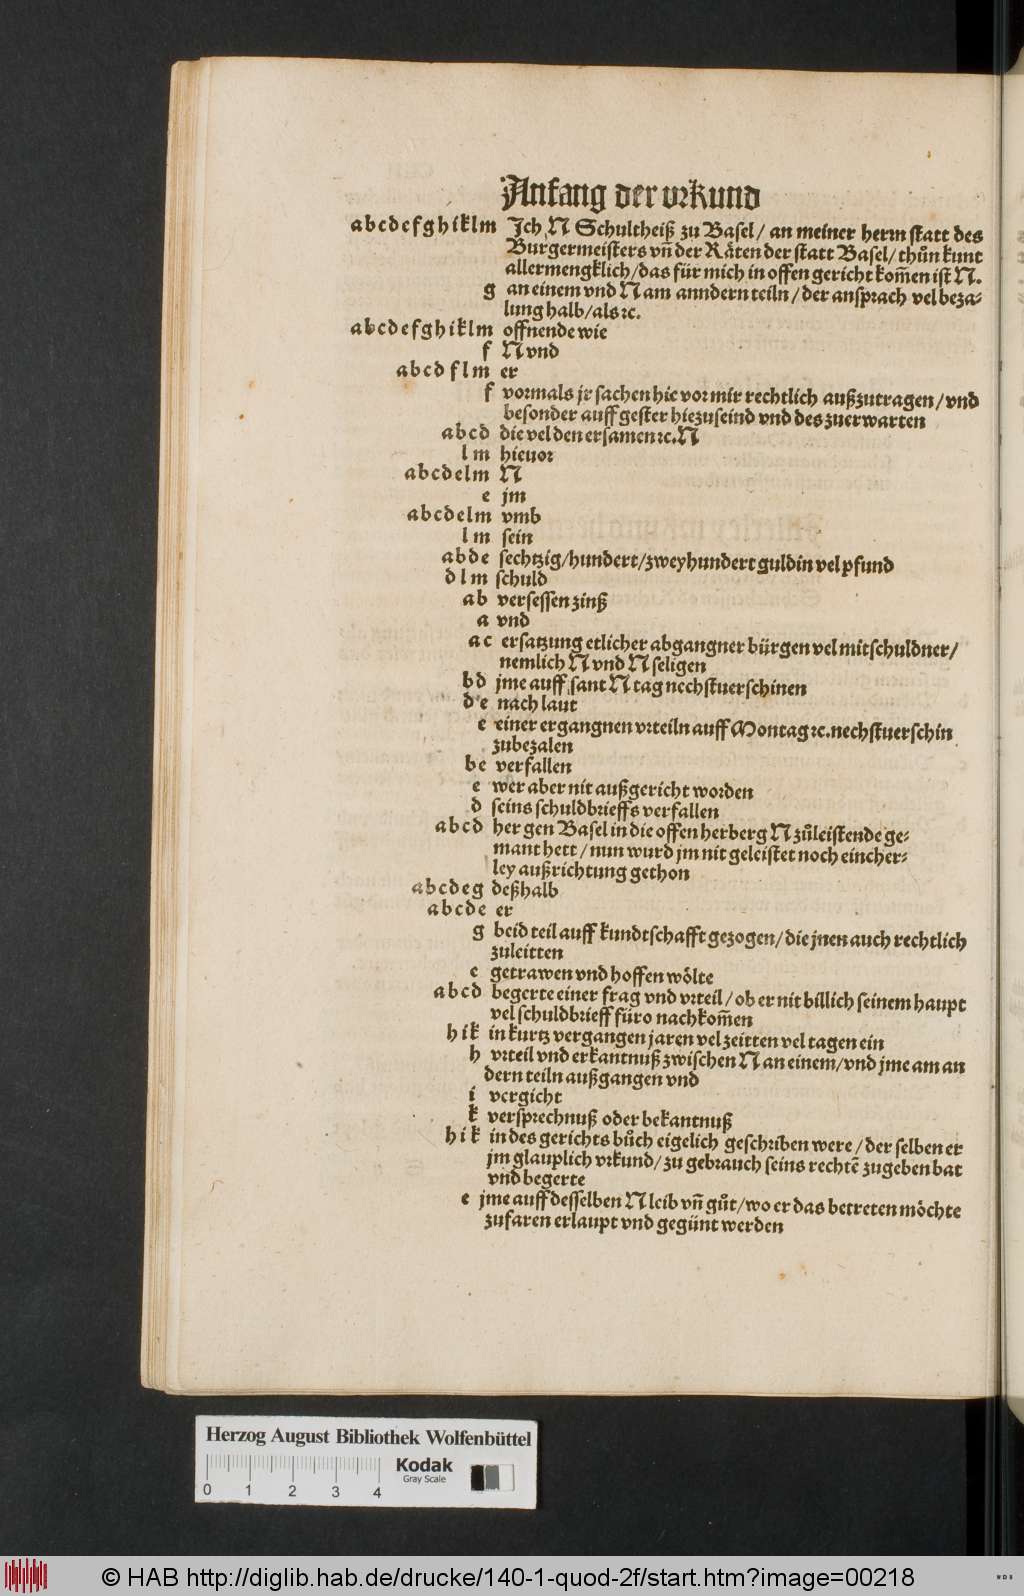 Anfang der vrkund
a b c d e f g h i k l m Jch N Schultheiß zu Basel / an meiner herrn statt des
Burgermeisters vñ der Räten der statt Basel / thůn kunt
allermengklich / das für mich in offen gericht kom̃en ist N.
g an einem vnd N am anndern teiln / der ansprach vel beza-
lung halb / als ꝛc.
a b c d e f g h i k l m offnende wie
f N vnd
a b c d f l m er
f vormals jr sachen hie vor mir rechtlich außzutragen / vnd
besonder auff gester hiezuseind vnd des zuerwarten
a b c d die vel den ersamen ꝛc. N
l m hieuor
a b c d e l m N
e jm
a b c d e l m vmb
l m sein
a b d e sechtzig / hundert / zweyhundert guldin vel pfund
d l m schuld
a b versessen zinß
a vnd
a c ersatzung etlicher abgangner bürgen vel mitschuldner /
nemlich N vnd N seligen
b d jme auff sant N tag nechstuerschinen
d e nach laut
e einer ergangnen vrteiln auff Montag ꝛc. nechstuerschin
zubezalen
b e verfallen
e wer aber nit außgericht worden
d seins schuldbrieffs verfallen
a b c d her gen Basel in die offen herberg N zůleistende ge-
mant hett / nun wurd jm nit geleistet noch eincher-
ley außrichtung gethon
a b c d e g deßhalb
a b c d e er
g beid teil auff kundtschafft gezogen / die jnen auch rechtlich
zuleitten
e getrawen vnd hoffen wölte
a b c d begerte einer frag vnd vrteil / ob er nit billich seinem haupt
vel schuldbrieff füro nachkom̃en
h i k in kurtz vergangen jaren vel zeitten vel tagen ein
h vrteil vnd erkantnuß zwischen N an einem / vnd jme am an
dern teiln außgangen vnd
i vergicht
k versprechnuß oder bekantnuß
h i k in des gerichts bůch eigelich geschriben were / der selben er
jm glauplich vrkund / zu gebrauch seins rechtē zugeben bat
vnd begerte
e jme auff desselben N leib vñ gůt / wo er das betreten möchte
zufaren erlaupt vnd gegünt werden
Herzog August Bibliothek Wolfenbüttel
Kodak
Gray Scale
0 1 2 3 4
© HAB http://diglib.hab.de/drucke/140-1-quod-2f/start.htm?image=00218